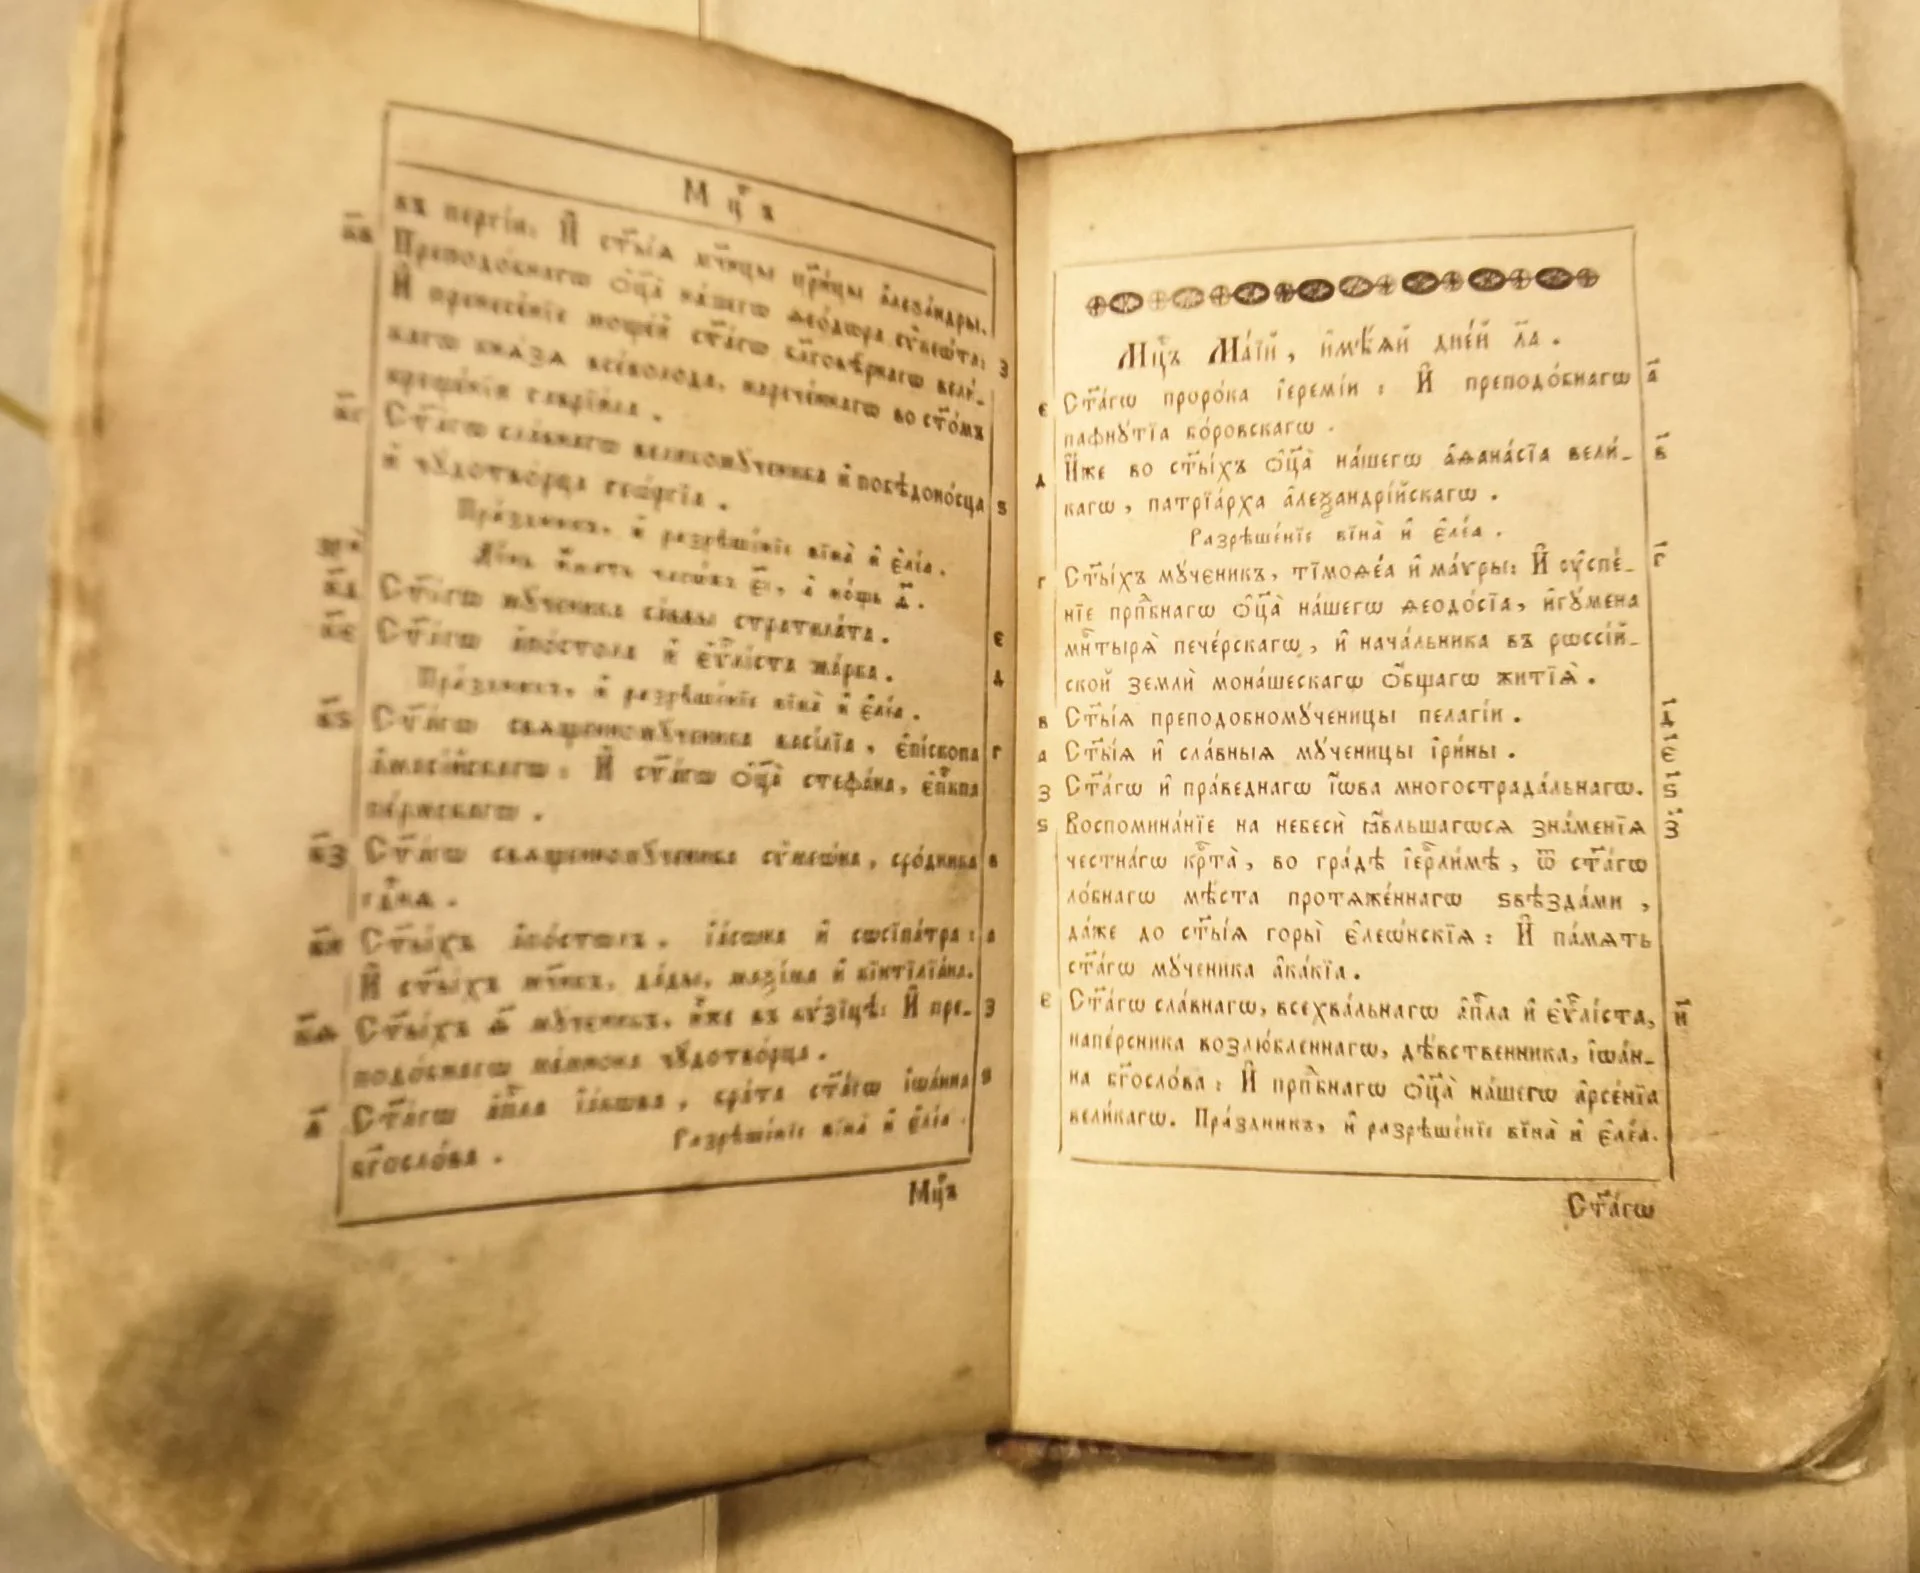 Мц҇ъ
въ пергі́и: И҆ ст҃ы́ѧ мч҃нцы цр҃и́цы а҆леѯа́ндры.
к҃в Преподо́бнагѡ ѻ҆ц҃а̀ на́шегѡ ѳео́дѡра сѷкеѡ́та: з
И҆ пренесе́нїе моще́й ст҃а́гѡ бл҃говѣ́рнагѡ вели́-
кагѡ кнѧ́зѧ все́волода, нарече́ннагѡ во ст҃о́мъ
креще́нїи гаврїи́ла.
к҃г Ст҃а́гѡ сла́внагѡ великомꙋ́ченика и҆ побѣдоно́сца ѕ
и҆ чꙋдотво́рца геѡ́ргїа.
Пра́здникъ, и҆ разрѣше́нїе вїна̀ и҆ є҆ле́а.
Де́нь и҆́мать часѡ́въ є҃і, а҆ но́щь д҃.
к҃д Ст҃а́гѡ мꙋ́ченика са́ввы стратила́та. є
к҃є Ст҃а́гѡ а҆по́стола и҆ є҆ѵⷢ҇лі́ста ма́рка. д
Пра́здникъ, и҆ разрѣше́нїе вїна̀ и҆ є҆ле́а.
к҃ѕ Ст҃а́гѡ свѧщенномꙋ́ченика васі́лїа, є҆пі́скопа г
а҆масі́йскагѡ: И҆ ст҃а́гѡ ѻ҆ц҃а̀ стефа́на, є҆пⷭ҇кпа
пе́рмскагѡ.
к҃з Ст҃а́гѡ свѧщенномꙋ́ченика сѷмеѡ́на, сро́дника в
гдⷭ҇нѧ.
к҃и Ст҃ы́хъ а҆по́стѡлъ, і҆а́сѡна и҆ сѡсіпа́тра: а
И҆ ст҃ы́хъ мч҃нкъ, да́ды, маѯі́ма и҆ кѵнтїлїа́на.
к҃ѳ Ст҃ы́хъ ѳ҃ мꙋ́ченикъ, и҆̀же въ кѵ́зїцѣ: И҆ пре- з
подо́бнагѡ ме́мнона чꙋдотво́рца.
л҃ Ст҃а́гѡ а҆пⷭ҇ла і҆а́кѡва, бра́та ст҃а́гѡ і҆ѡа́нна ѕ
бг҃осло́ва. Разрѣше́нїе вїна̀ и҆ є҆ле́а.
Мц҇ъ
Мц҇ъ Ма́їй, и҆мѣ́ѧй дне́й л҃а.
є Ст҃а́гѡ проро́ка і҆еремі́и: И҆ преподо́бнагѡ а҃
пафнꙋ́тїа бо́ровскагѡ.
д И҆́же во ст҃ы́хъ ѻ҆ц҃а̀ на́шегѡ а҆ѳана́сїа вели́- в҃
кагѡ, патрїа́рха а҆леѯандрі́йскагѡ.
Разрѣше́нїе вїна̀ и҆ є҆ле́а.
г Ст҃ы́хъ мꙋ́ченикъ, тїмоѳе́а и҆ ма́ѵры: И҆ ᲂу҆спе́- г҃
нїе прпⷣбнагѡ ѻ҆ц҃а̀ на́шегѡ ѳеодо́сїа, и҆гꙋ́мена
мн҃тырѧ̀ пече́рскагѡ, и҆ нача́льника въ рѡссі́й-
ской землѝ мона́шескагѡ ѻ҆́бщагѡ житїѧ̀.
в Ст҃ы́ѧ преподобномꙋ́ченицы пелагі́и. д҃
а Ст҃ы́ѧ и҆ сла́вныѧ мꙋ́ченицы і҆ри́ны. є҃
з Ст҃а́гѡ и҆ пра́веднагѡ і҆́ѡва многострада́льнагѡ. ѕ҃
ѕ Воспомина́нїе на небесѝ ꙗ҆́вльшагѡсѧ зна́менїѧ з҃
честна́гѡ крⷭ҇та̀, во гра́дѣ і҆ерⷭ҇ли́мѣ, ѿ ст҃а́гѡ
ло́бнагѡ мѣ́ста протѧже́ннагѡ ѕвѣзда́ми,
да́же до ст҃ы́ѧ горы̀ є҆леѡ́нскїѧ: И҆ па́мѧть
ст҃а́гѡ мꙋ́ченика а҆ка́кїа.
є Ст҃а́гѡ сла́внагѡ, всехва́льнагѡ а҆пⷭ҇ла и҆ є҆ѵⷢ҇лі́ста, и҃
напе́рсника возлю́бленнагѡ, дѣ́вственника, і҆ѡа́н-
на бг҃осло́ва: И҆ прпⷣбнагѡ ѻ҆ц҃а̀ на́шегѡ а҆рсе́нїа
вели́кагѡ. Пра́здникъ, и҆ разрѣше́нїе вїна̀ и҆ є҆ле́а.
Ст҃а́гѡ